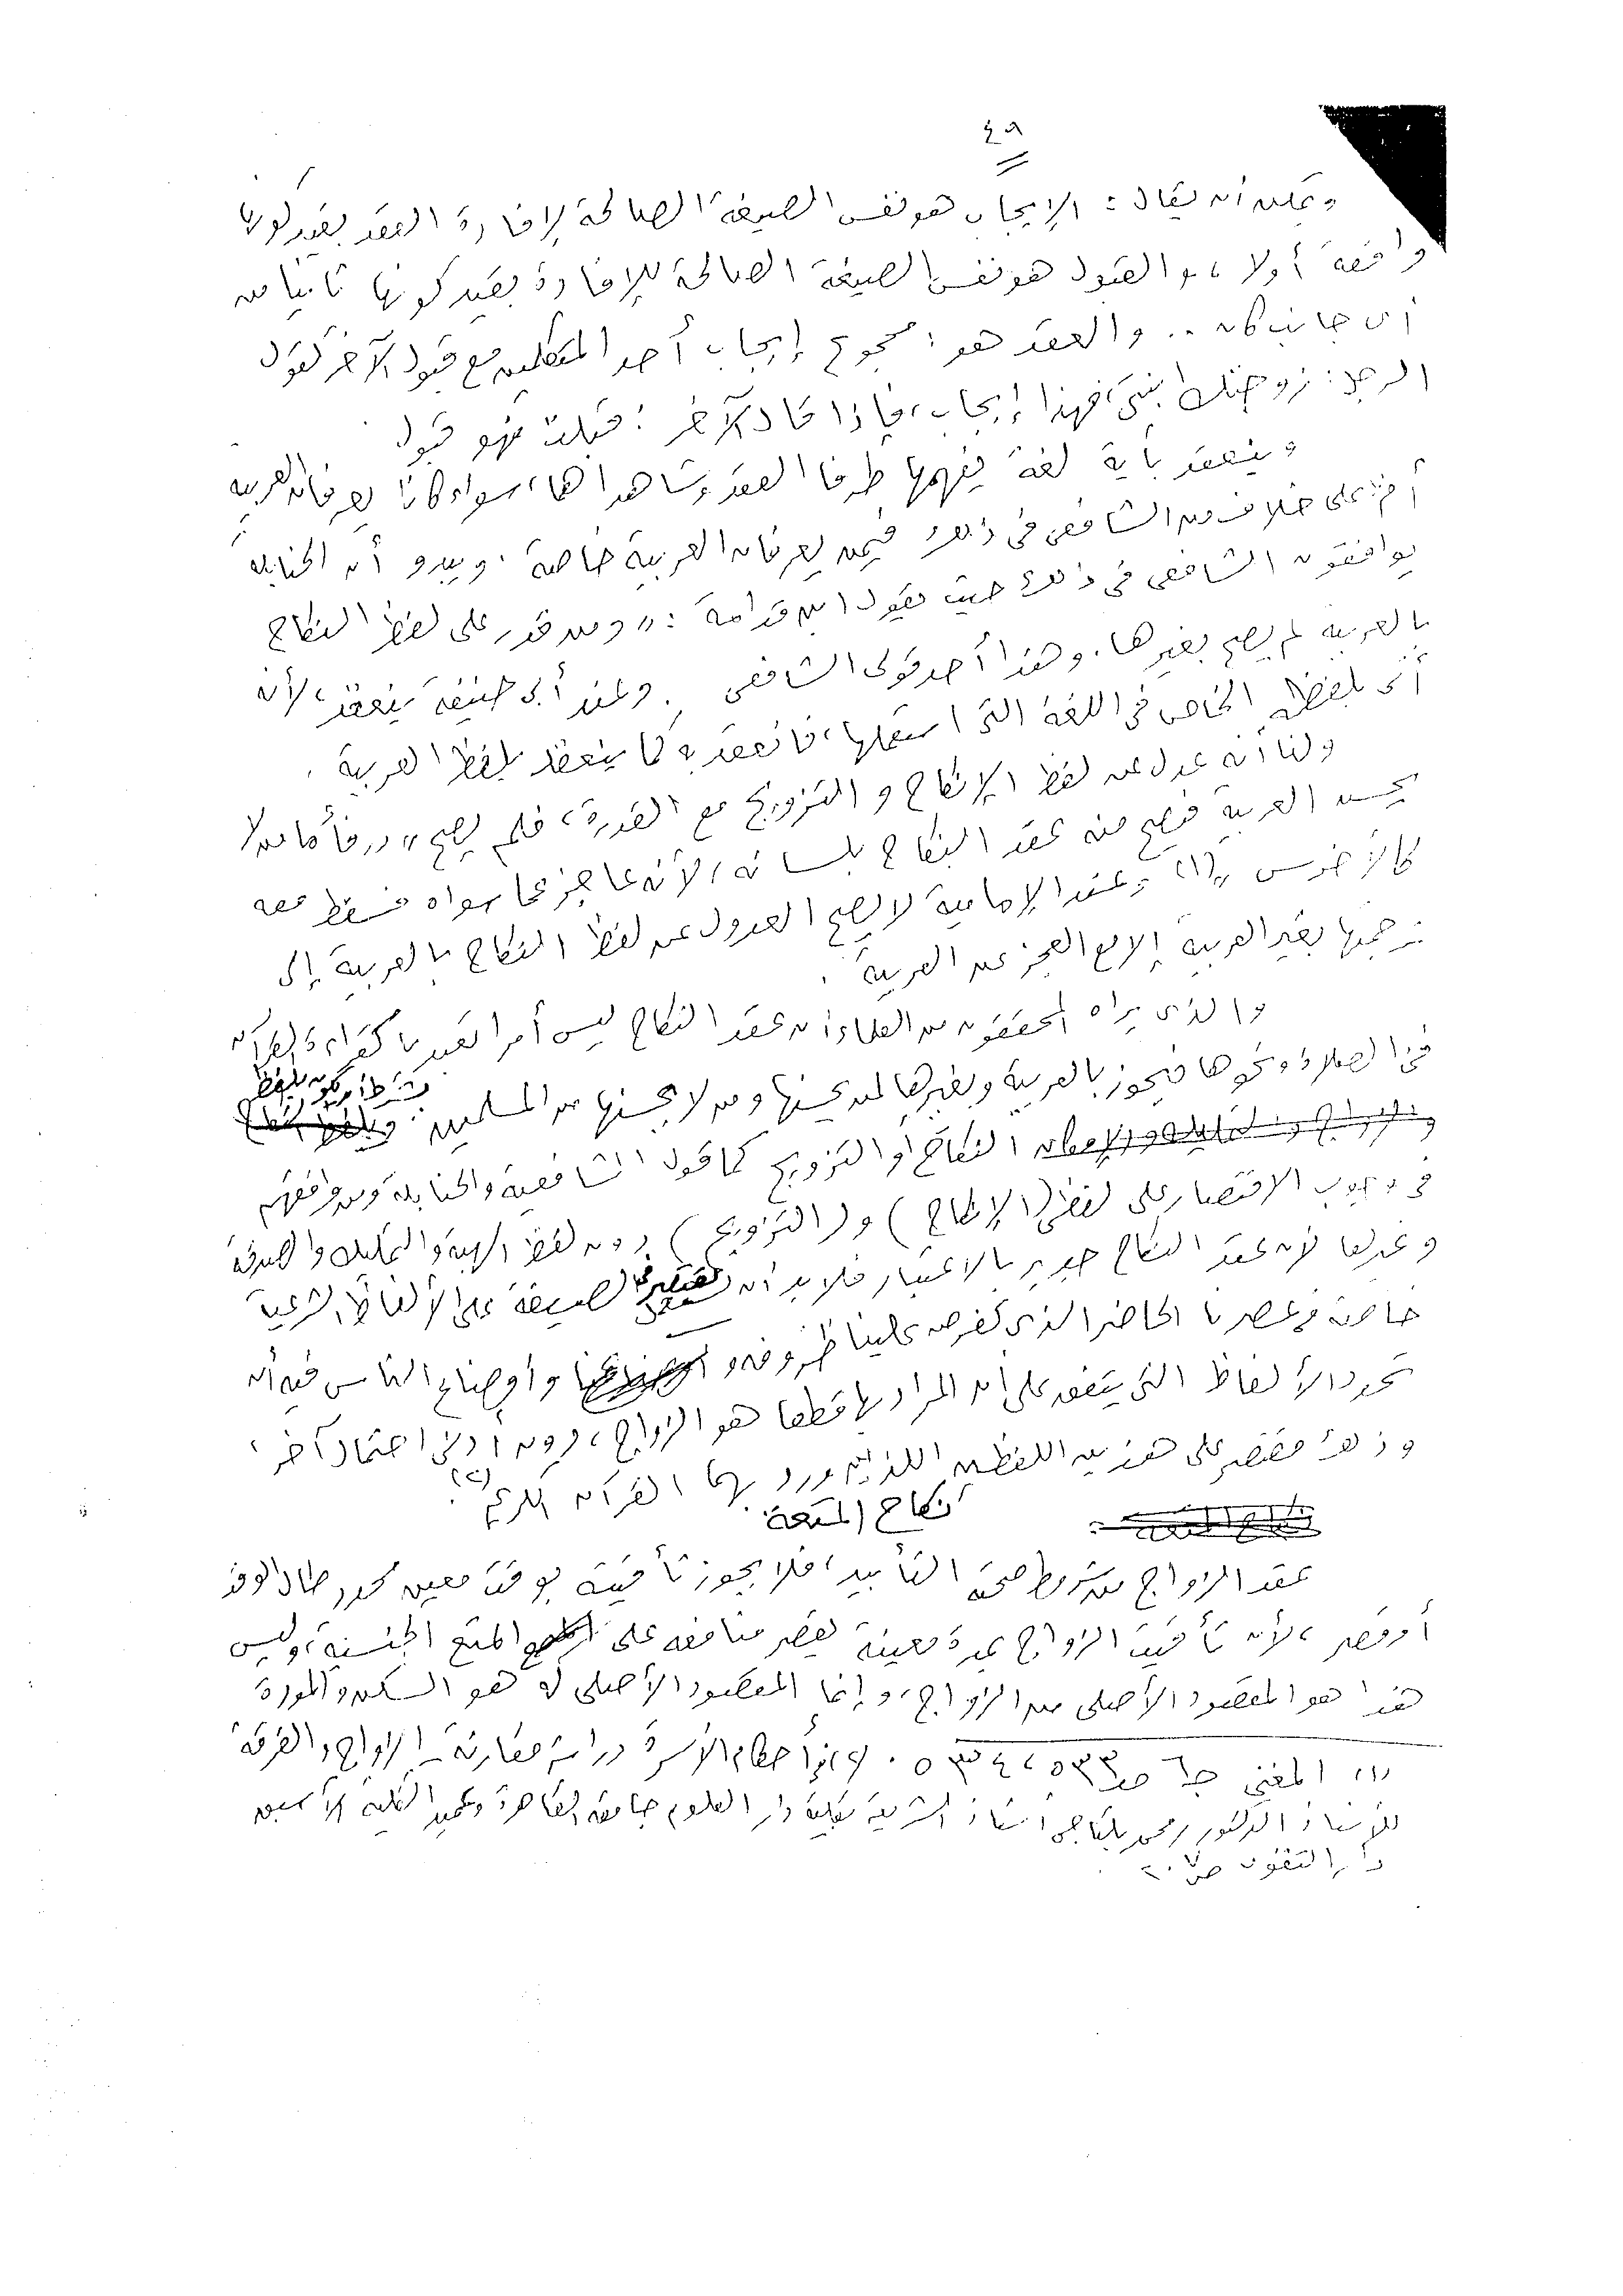 ٤٩
ويمكن أن يقال: الإيجاب هو نفس الصيغة الصالحة لإفادة العقد بقيد كونها
واقعة أولا، والقبول هو نفس الصيغة الصالحة للإفادة بقيد كونها ثانيا من
أى جانب كان.. والعقد هو: مجموع إيجاب أحد المتكلمين مع قبول الآخر كقول
الرجل: زوجتك ابنتى، فهذا إيجاب، فإذا قال الآخر: قبلت فهو قبول
وينعقد بأية لغة يفهمها طرفا العقد وشاهداها، سواء كانا يعرفان العربية
أم على خلاف من الشافعى فى ذلك فيمن يعرفان العربية خاصة. ويبدو أن الحنابلة
يوافقون الشافعى فى ذلك حيث يقول ابن قدامة: "ومن قدر على لفظ النكاح
بالعربية لم يصح بغيرها. وهذا أحد قولى الشافعى. وعند أبى حنيفة ينعقد، لأنه
أتى بلفظه الخاص فى اللغة التى استعملها، فانعقد به كما ينعقد بلفظ العربية.
ولنا أنه عدل عن لفظ الإنكاح والتزويج مع القدرة، فلم يصح"، "فأما من لا
يحسن العربية فيصح منه عقد النكاح بلسانه، لأنه عاجز عما سواه فسقط عنه
كالأخرس" (١) وعند الإمامية لا يصح العدول عن لفظ النكاح بالعربية إلى
ترجمتها بغير العربية إلا مع العجز عن العربية.
والذى يراه المحققون من العلماء أن عقد النكاح ليس أمرا تعبديا كقراءة القرآن
فى الصلاة ونحوها فيجوز بالعربية وبغيرها لمن يحسنها ومن لا يحسنها من المسلمين
بشرط أن يكون بلفظ
النكاح أو التزويج كما قول الشافعية والحنابلة ومن وافقهم
فى وجوب الاقتصار على لفظى (الإنكاح) و(التزويج) دون لفظ الهبة والتمليك والصدقة
وغيرها لأن عقد النكاح جدير بالاعتبار فلابد أن تقتصر الصيغة على الألفاظ الشرعية
خاصة وعصرنا الحاضر الذى تفرض علينا ظروفه وأوضاع الناس فيه أن
تحدد الألفاظ التى يتفق على أن المراد بها قطعا هو الزواج، دون أدنى احتمال آخر،
وذلك مقتصر على هذين اللفظين اللذين ورد بهما القرآن الكريم (٢).
نكاح المتعة:
عقد الزواج من شروط صحته التأبيد، فلا يجوز تأقيته بوقت معين محدد طال الوقت
أو قصر، لأن تأقيت الزواج بمدة معينة يقصر منافعه على المتع الجنسية، وليس
هذا هو المقصود الأصلى من الزواج، وإنما المقصود الأصلى له هو السكن والمودة
(١) المغنى جـ٦ صـ٥٣٣، ٥٣٤. (٢) أحكام الأسرة دراسة مقارنة - الزواج والفرقة
للأستاذ الدكتور محمد بلتاجى أستاذ الشريعة بكلية دار العلوم جامعة القاهرة وعميد الكلية الأسبق
دار التقوى